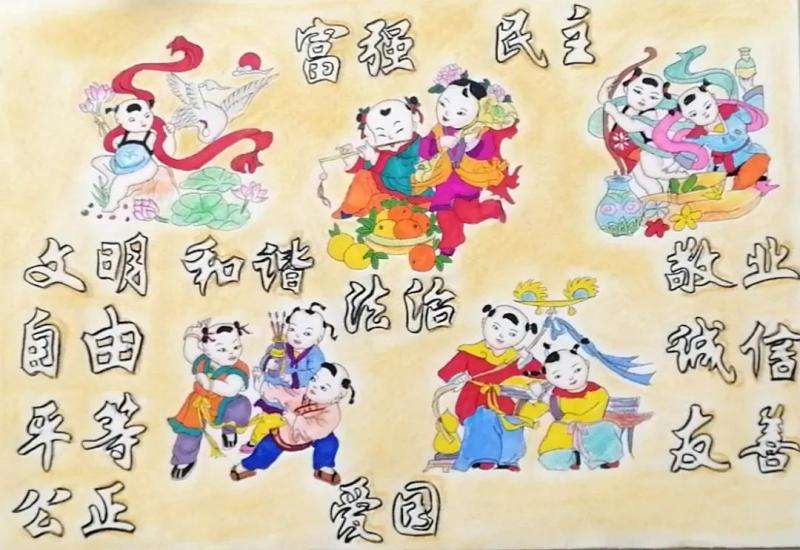 富强 民主
文明 和谐
法治
敬业
自由
诚信
平等
友善
公正
爱国